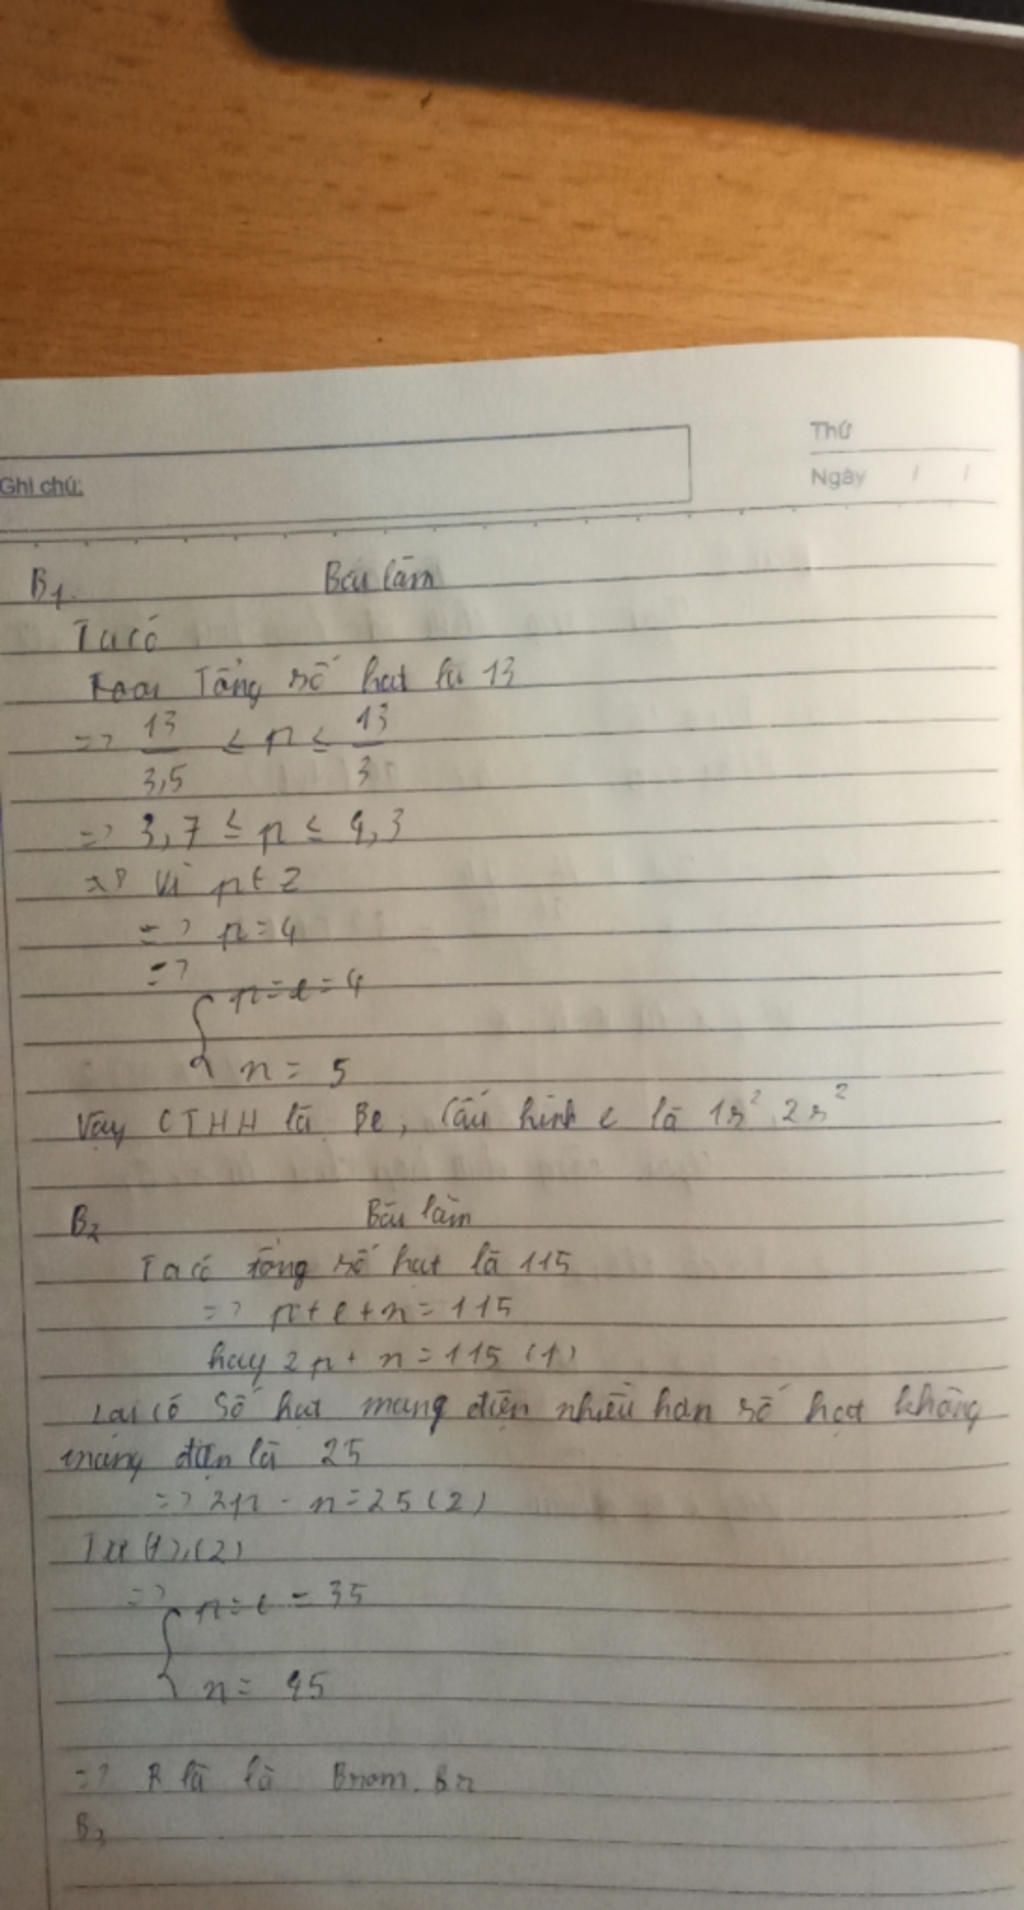 Thứ
Ghi chú:
Ngày / /
B1. Bài làm
Ta có
Tổng số hạt là 13
=> 13/3,5 ≤ p ≤ 13/3
=> 3,7 ≤ p ≤ 4,3
=> Vì p ∈ Z
=> p = 4
=>
{ p = e = 4
n = 5
Vậy CTHH là Be, Cấu hình e là 1s² 2s²
B2 Bài làm
Ta có tổng số hạt là 115
=> p + e + n = 115
hay 2p + n = 115 (1)
Lại có Số hạt mang điện nhiều hơn số hạt không
mang điện là 25
=> 2p - n = 25 (2)
Từ (1), (2)
=>
{ p = e = 35
n = 45
=> R là là Brom. Br
B3